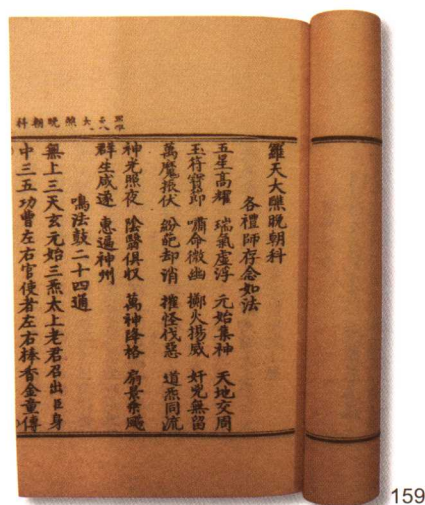 羅天大醮晚朝科
羅天大醮晚朝科
各禮師存念如法
五星高耀 瑞氣虛浮 元始集神 天地交周
玉符寶節 嘯命微幽 擲火揚威 奸兇無留
萬魔振伏 紛葩却消 摧怪伐惡 道炁同流
神光照夜 陰翳俱収 萬神降格 扇景乘飈
群生咸遂 惠遍神州
鳴法鼓二十四通
無上三天玄元始三炁太上老君召出臣身
中三五功曹左右官使者左右捧香金童傳
159